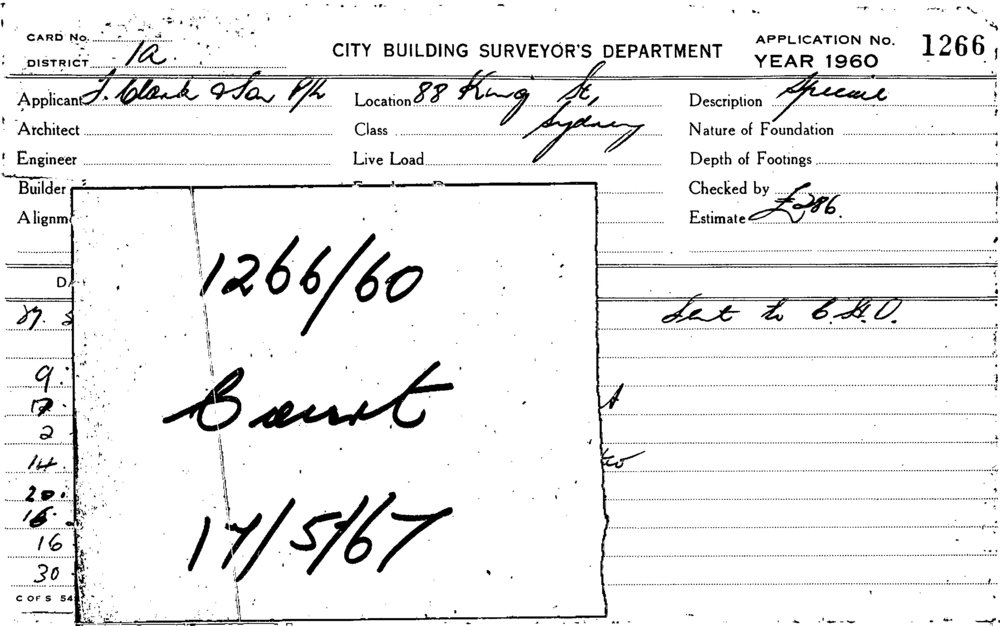 CARD No.
DISTRICT 1a.
CITY BUILDING SURVEYOR'S DEPARTMENT
APPLICATION No. 1266
YEAR 1960
Applicant J. Clark & Son P/L
Location 88 King St, Sydney
Description Special
Architect
Class
Nature of Foundation
Engineer
Live Load
Depth of Footings
Builder
Checked by
Alignm
Estimate £286.
D
Sent to C.H.O.
9.
2
14
20.
16
30
C OF S 54
1266/60
Court
17/5/67